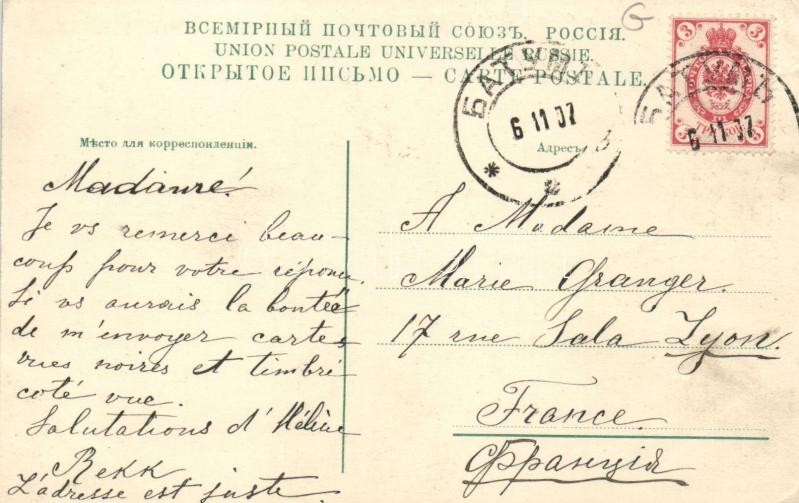 ВСЕМІРНЫЙ ПОЧТОВЫЙ СОЮЗЪ. РОССІЯ.
UNION POSTALE UNIVERSELLE RUSSIE.
ОТКРЫТОЕ ПИСЬМО — CARTE POSTALE.
Мѣсто для корреспонденціи.
Адресъ
БАТУМЪ
6 11 07
БАТУМЪ
6 11 07
3 3
3 3
Madame!
Je vs remerci beau-
coup pour votre réponse.
Si vs aurais la bonteé
de m'envoyer cartes
vues noires et timbré
coté vue.
Salutations d'Hélène
Rekk
L'adresse est juste.
A Madame
Marie Granger.
17 rue Sala Lyon.
France.
Франція